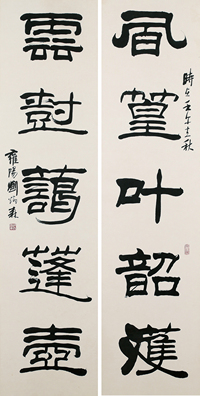 風篁叶韶濩
時在壬午之秋
雲尌藹蓬壺
雍陽劉炳森